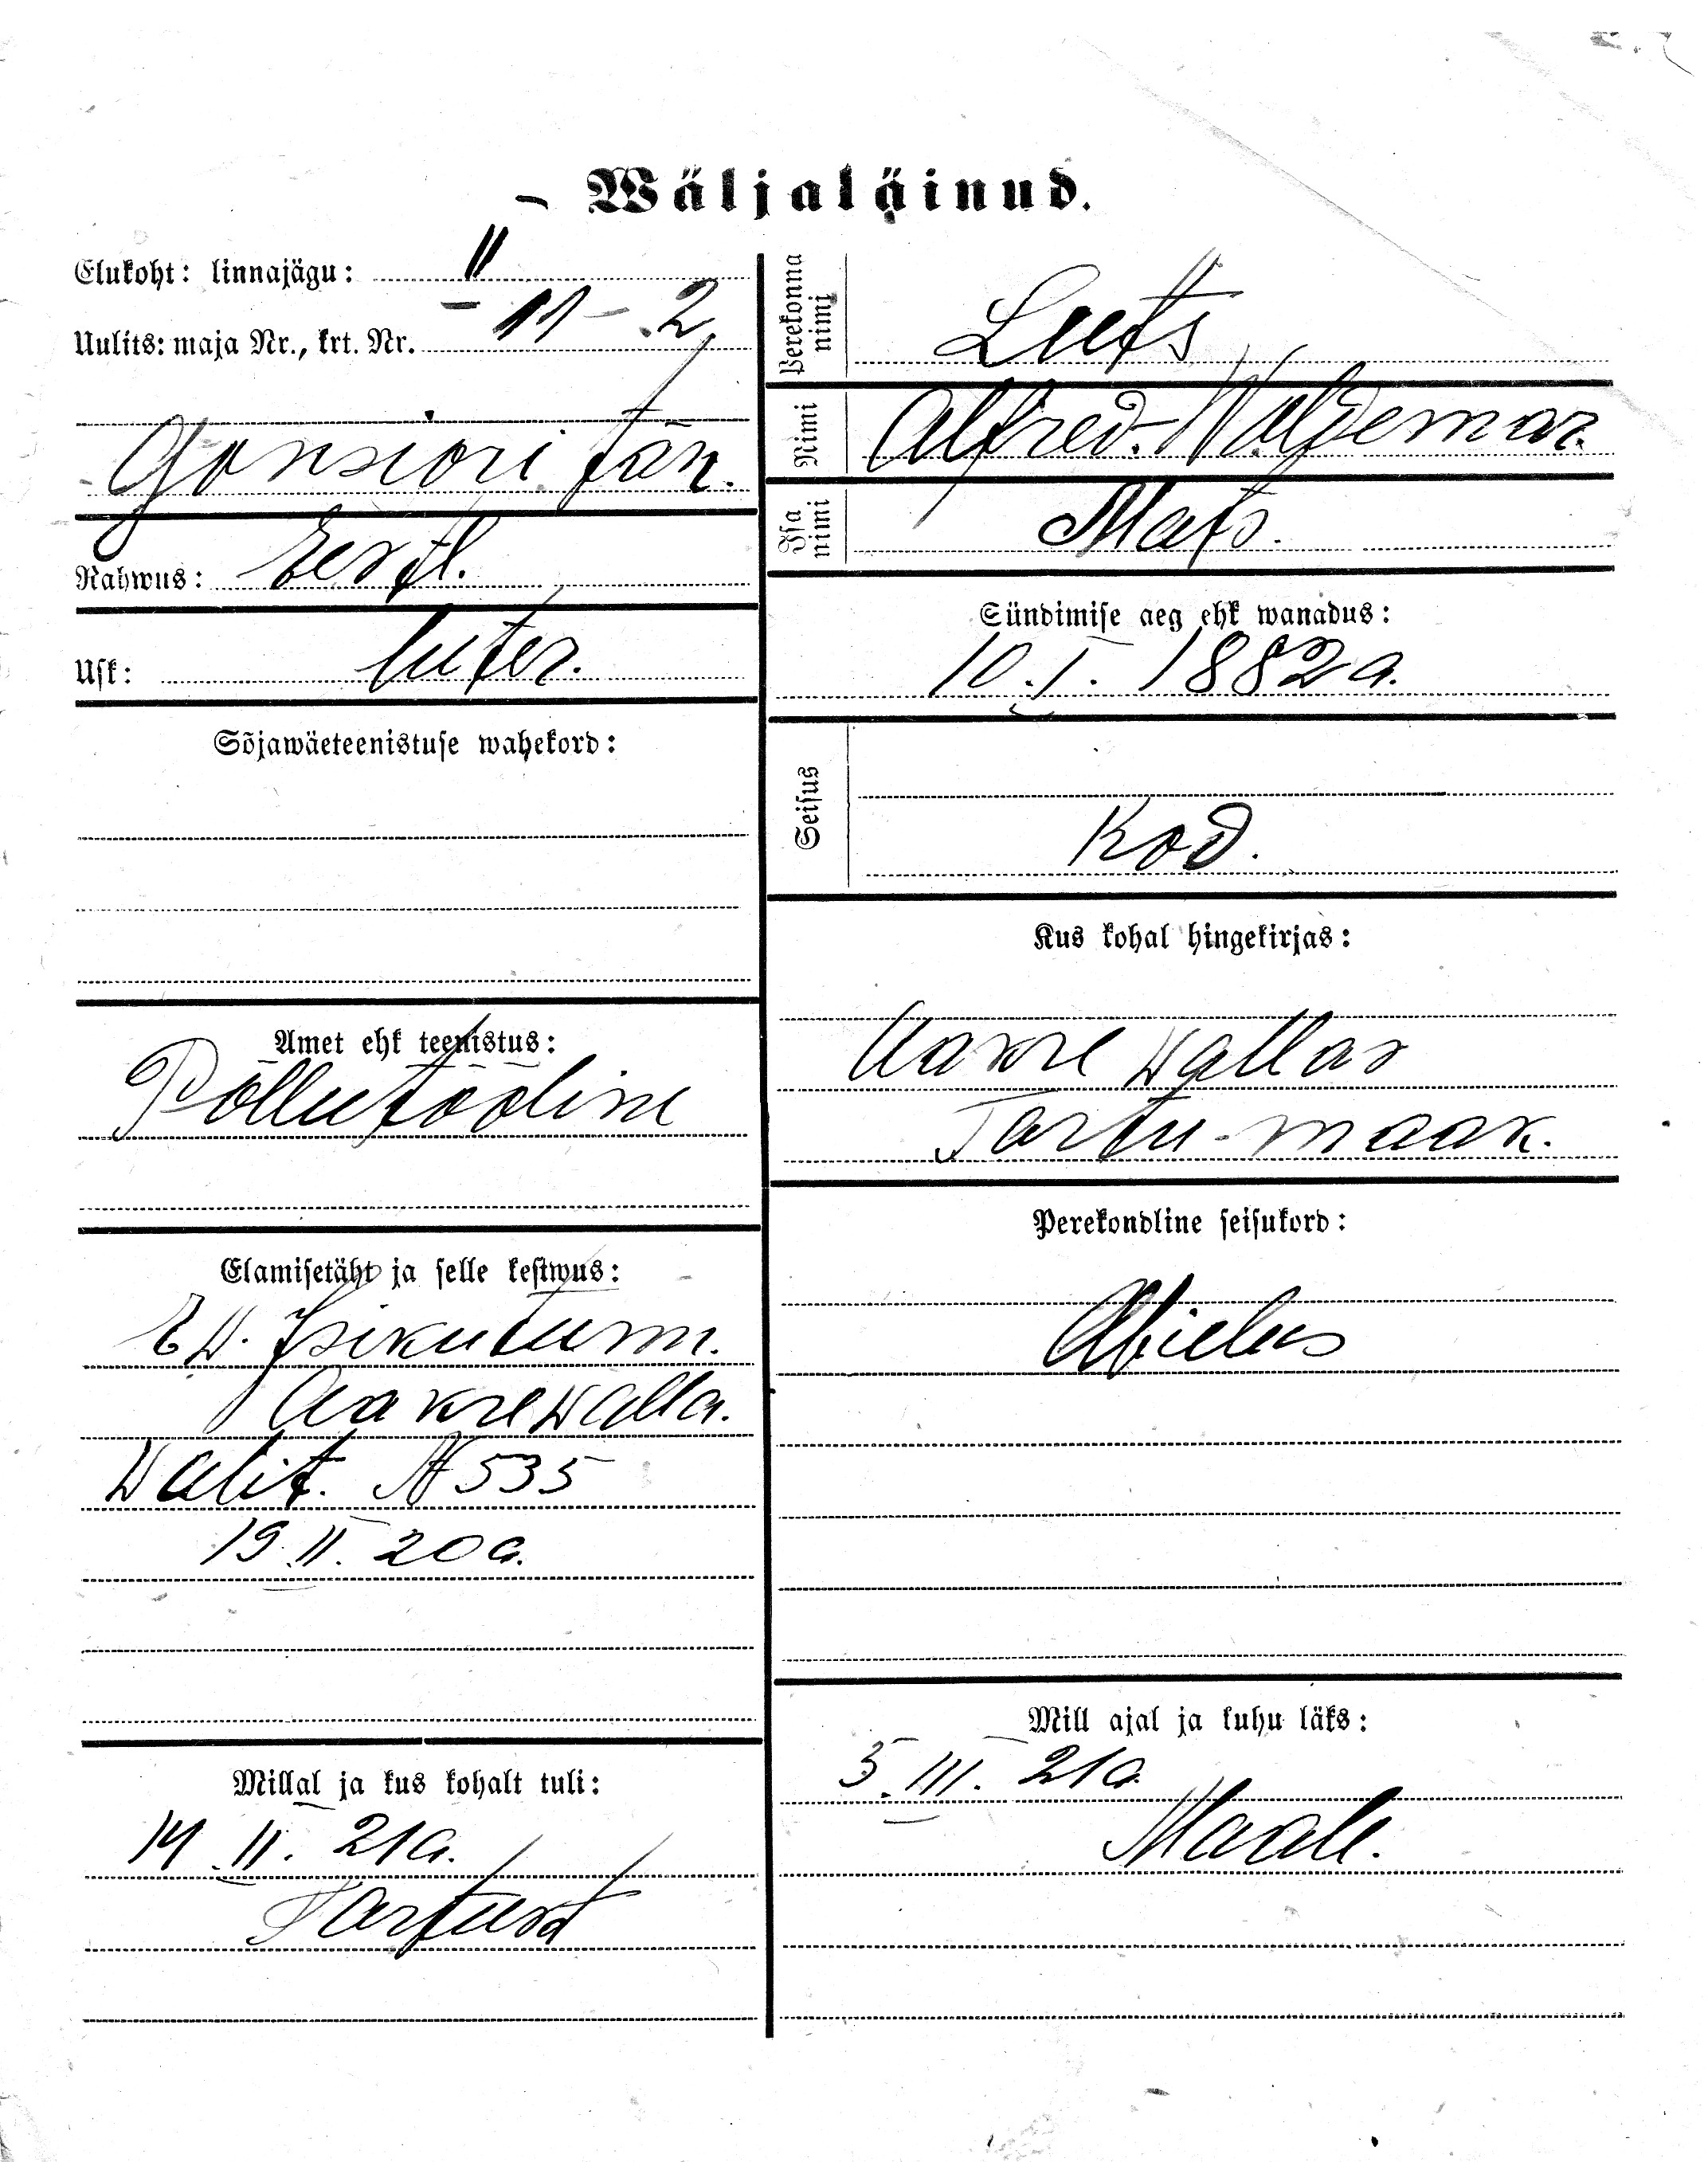 Wäljaläinud.
Elukoht: linnajägu: II
Uulits: maja Nr., krt. Nr. - 11 - 2
Gonsiori tän.
Rahwus: Eestl.
Usk: luter.
Sõjawäeteenistuse wahekord:
Amet ehk teenistus:
Põllutööline
Elamisetäht ja selle kestwus:
Ew. Isikutunn.
Aakre walla.
Walit. № 535
19.II.20 a.
Millal ja kus kohalt tuli:
14.II.21 a.
Tartust
Perekonna nimi
Luts
Nimi
Alfred-Woldemar
Isa nimi
Mats.
Sündimise aeg ehk wanadus:
10.I.1882 a.
Seisus
Kod.
Kus kohal hingekirjas:
Aakre wallas
Tartu-maak.
Perekondline seisukord:
Abielus
Mill ajal ja kuhu läks:
5.III.21 a.
Maale.